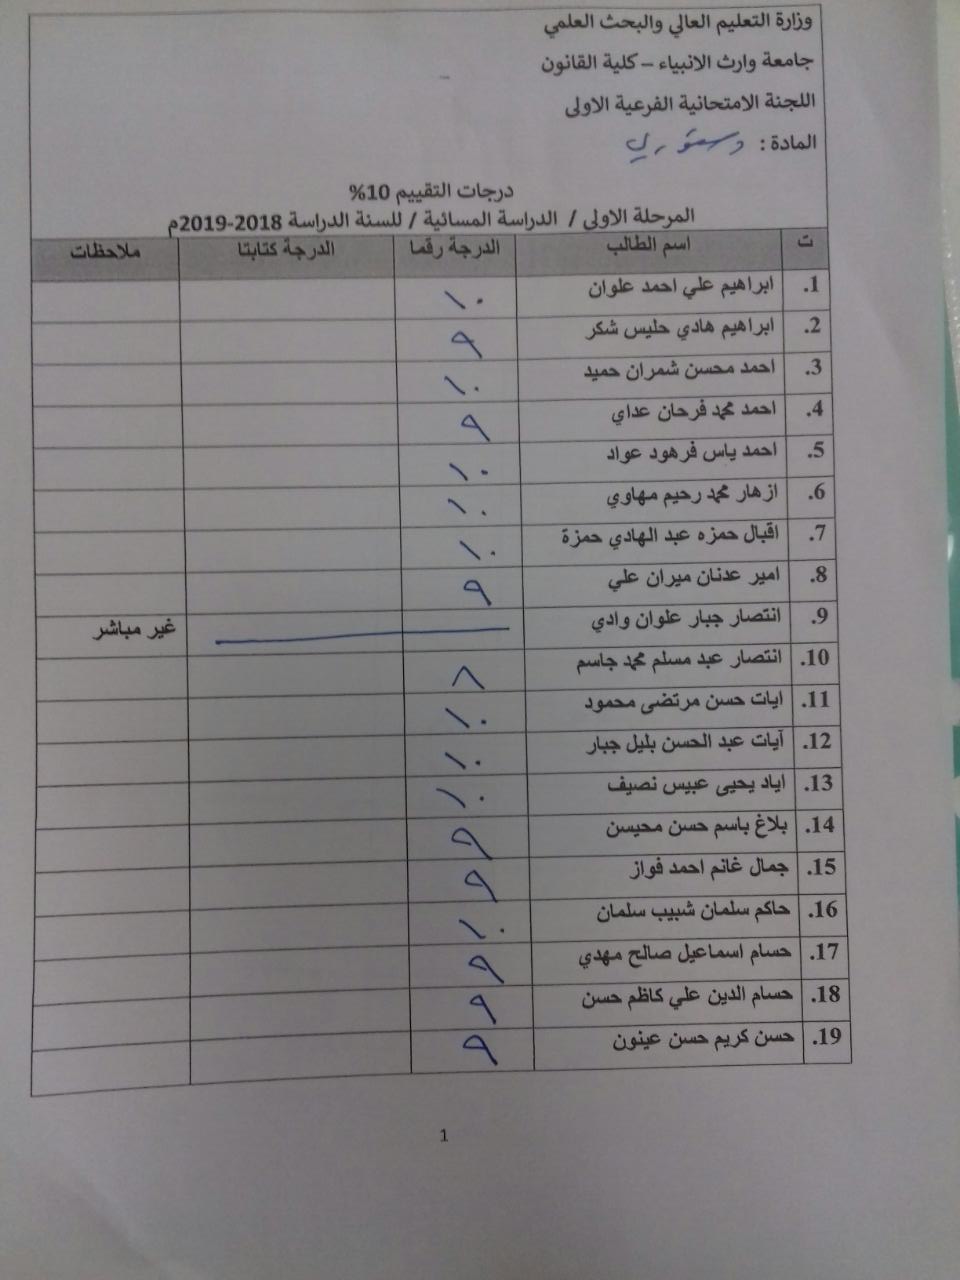 وزارة التعليم العالي والبحث العلمي
جامعة وارث الانبياء – كلية القانون
اللجنة الامتحانية الفرعية الاولى
المادة : دستوري
درجات التقييم 10%
المرحلة الاولى / الدراسة المسائية / للسنة الدراسة 2018-2019م
ت اسم الطالب الدرجة رقما الدرجة كتابتا ملاحظات
1. ابراهيم علي احمد علوان ١٠
2. ابراهيم هادي حليس شكر ٩
3. احمد محسن شمران حميد ١٠
4. احمد محمد فرحان عداي ٩
5. احمد ياس فرهود عواد ١٠
6. ازهار محمد رحيم مهاوي ١٠
7. اقبال حمزه عبد الهادي حمزة ١٠
8. امير عدنان ميران علي ٩
9. انتصار جبار علوان وادي غير مباشر
10. انتصار عبد مسلم محمد جاسم ٨
11. ايات حسن مرتضى محمود ١٠
12. آيات عبد الحسن بليل جبار ١٠
13. اياد يحيى عبيس نصيف ١٠
14. بلاغ باسم حسن محيسن ٩
15. جمال غانم احمد فواز ٩
16. حاكم سلمان شبيب سلمان ١٠
17. حسام اسماعيل صالح مهدي ٩
18. حسام الدين علي كاظم حسن ٩
19. حسن كريم حسن عينون ٩
1